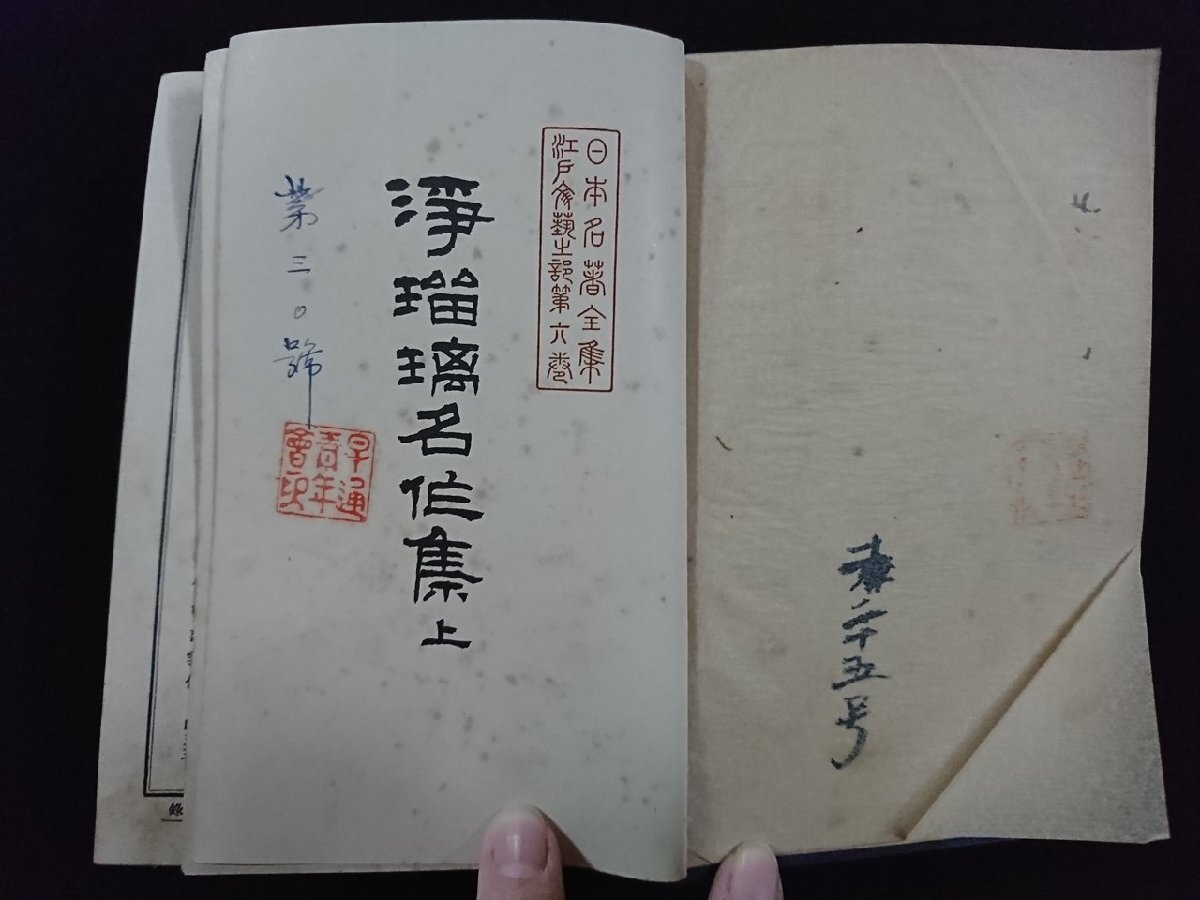 第二十五号
日本名著全集
江戸文藝之部第六卷
淨瑠璃名作集上
第三〇號
早通
青年
會印
錄